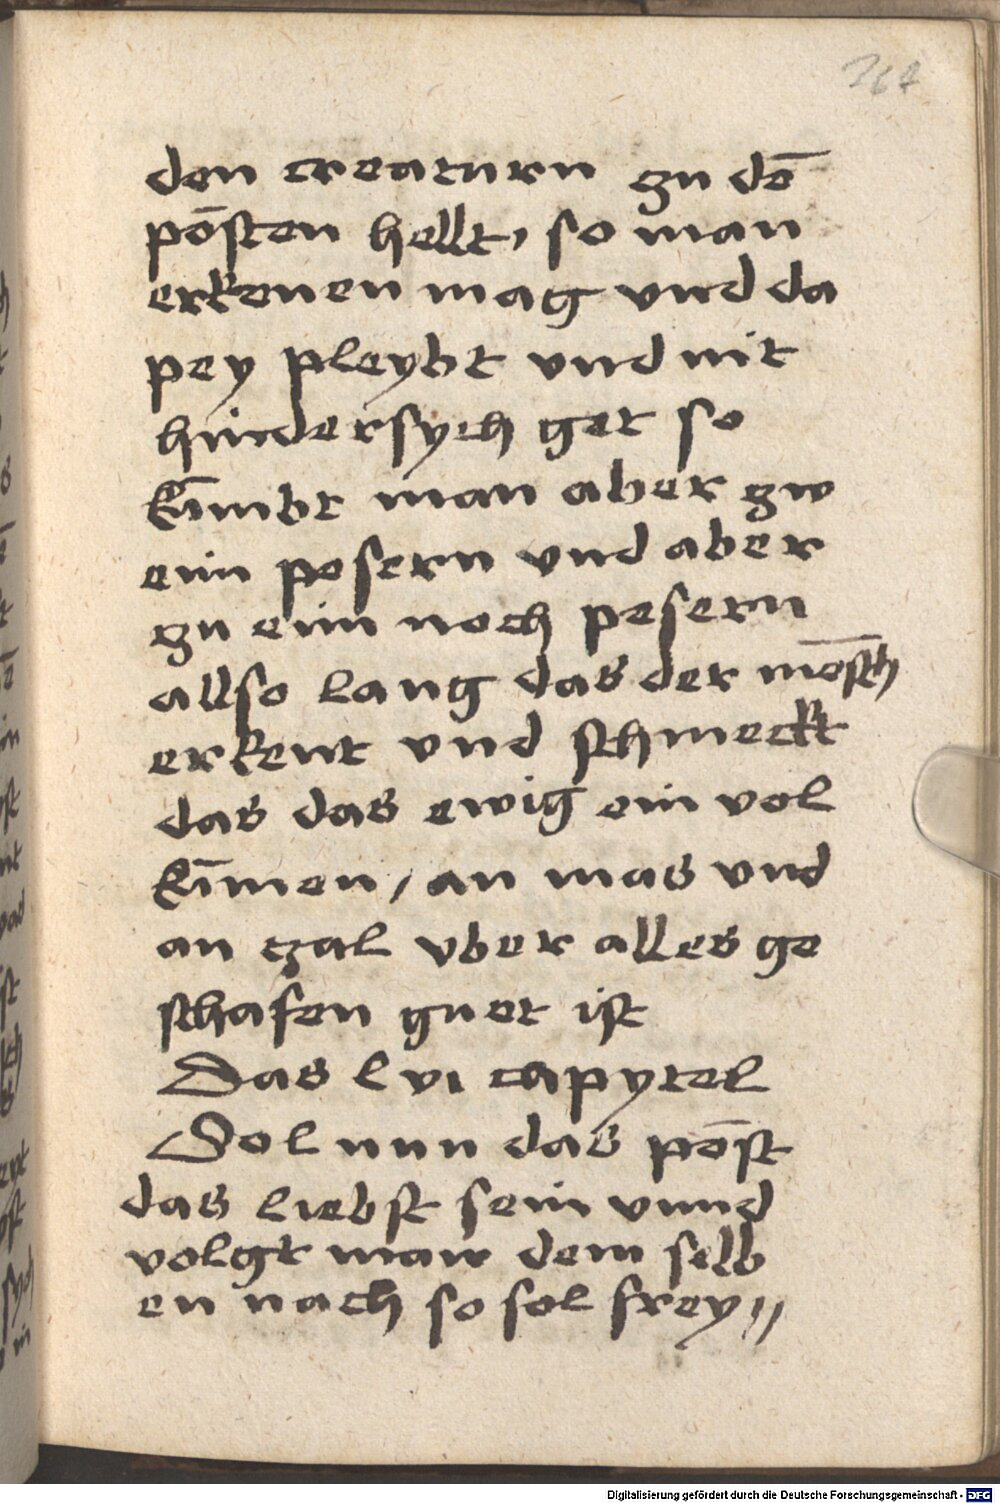 264
den creaturn zu dē
pōsten hellt, so man
erkenen mag vnd da
pey pleybt vnd nit
hindersych get so
kūmbt man aber zw
eim posern vnd aber
zu eim noch pesern
allso lang das der mēsch
erkent vnd schmeckt
das das ewig ein vol
kūmen, an mas vnd
an zal vber alles ge
schafen guet ist
Das lvi capytel
Sol nun das pōst
das liebst sein vnnd
volgt man dem selb
en nach so sol frey //
Digitalisierung gefördert durch die Deutsche Forschungsgemeinschaft - DFG